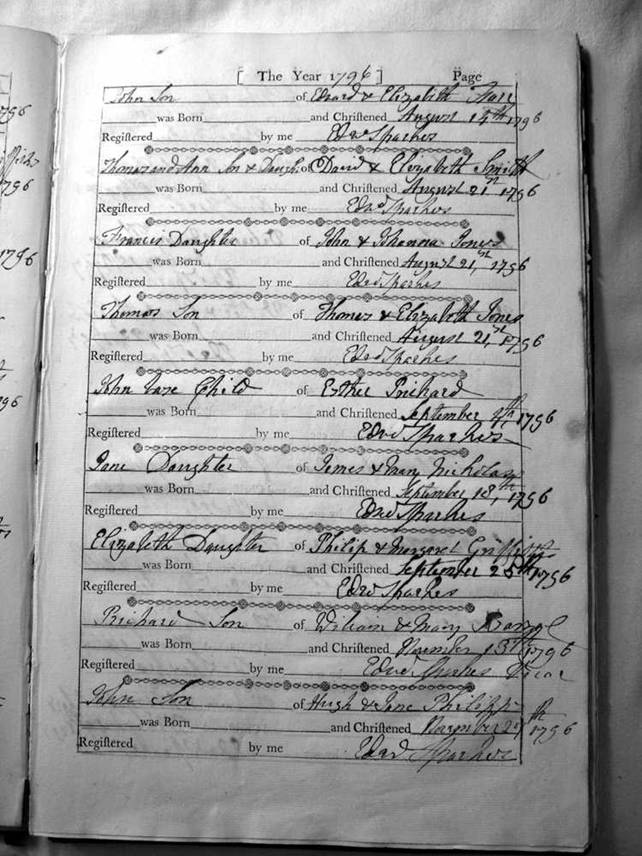 [ The Year 1796 ] Page
John Son of Edward & Elizabeth
was Born and Christened August 14th 1796
Registered by me Edwd Sparkes
Thomas and Ann Son & Daugh. of David & Elizabeth Smith
was Born and Christened August 21st 1796
Registered by me Edwd Sparkes
Francis Daughter of John & Johanna Jones
was Born and Christened August 21st 1796
Registered by me Edwd Sparkes
Thomas Son of Thomas & Elizabeth Jones
was Born and Christened August 21st 1796
Registered by me Edwd Sparkes
John base Child of Esther Prichard
was Born and Christened September 4th 1796
Registered by me Edwd Sparkes
Jane Daughter of James & Mary Nicholas
was Born and Christened September 18th 1796
Registered by me Edwd Sparkes
Elizabeth Daughter of Philip & Margaret Griffiths
was Born and Christened September 25th 1796
Registered by me Edwd Sparkes
Richard Son of William & Mary
was Born and Christened November 13th 1796
Registered by me Edwd Sparkes Vicar
John Son of Hugh & Jane Philipps
was Born and Christened November 20th 1796
Registered by me Edwd Sparkes
1796
1796
1796